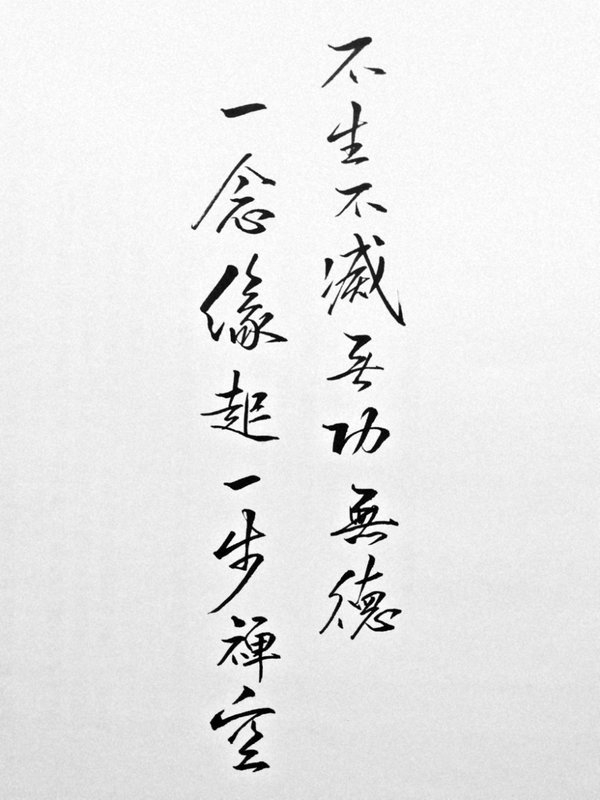 不生不滅无功無德
一念缘起一步禅空